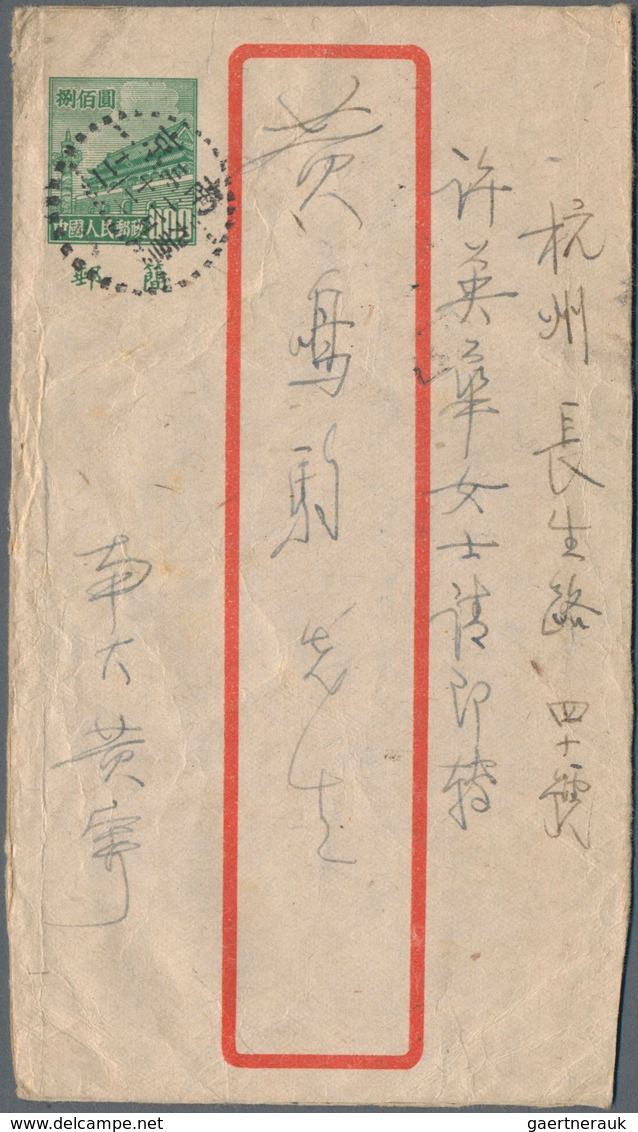 杭州長生路四十號
許英華女士請即轉
黄
先生
南大黄寧
捌佰圓
800
中國人民郵政
郵簡
南
京
www.delcampe.net
gaertnerauk